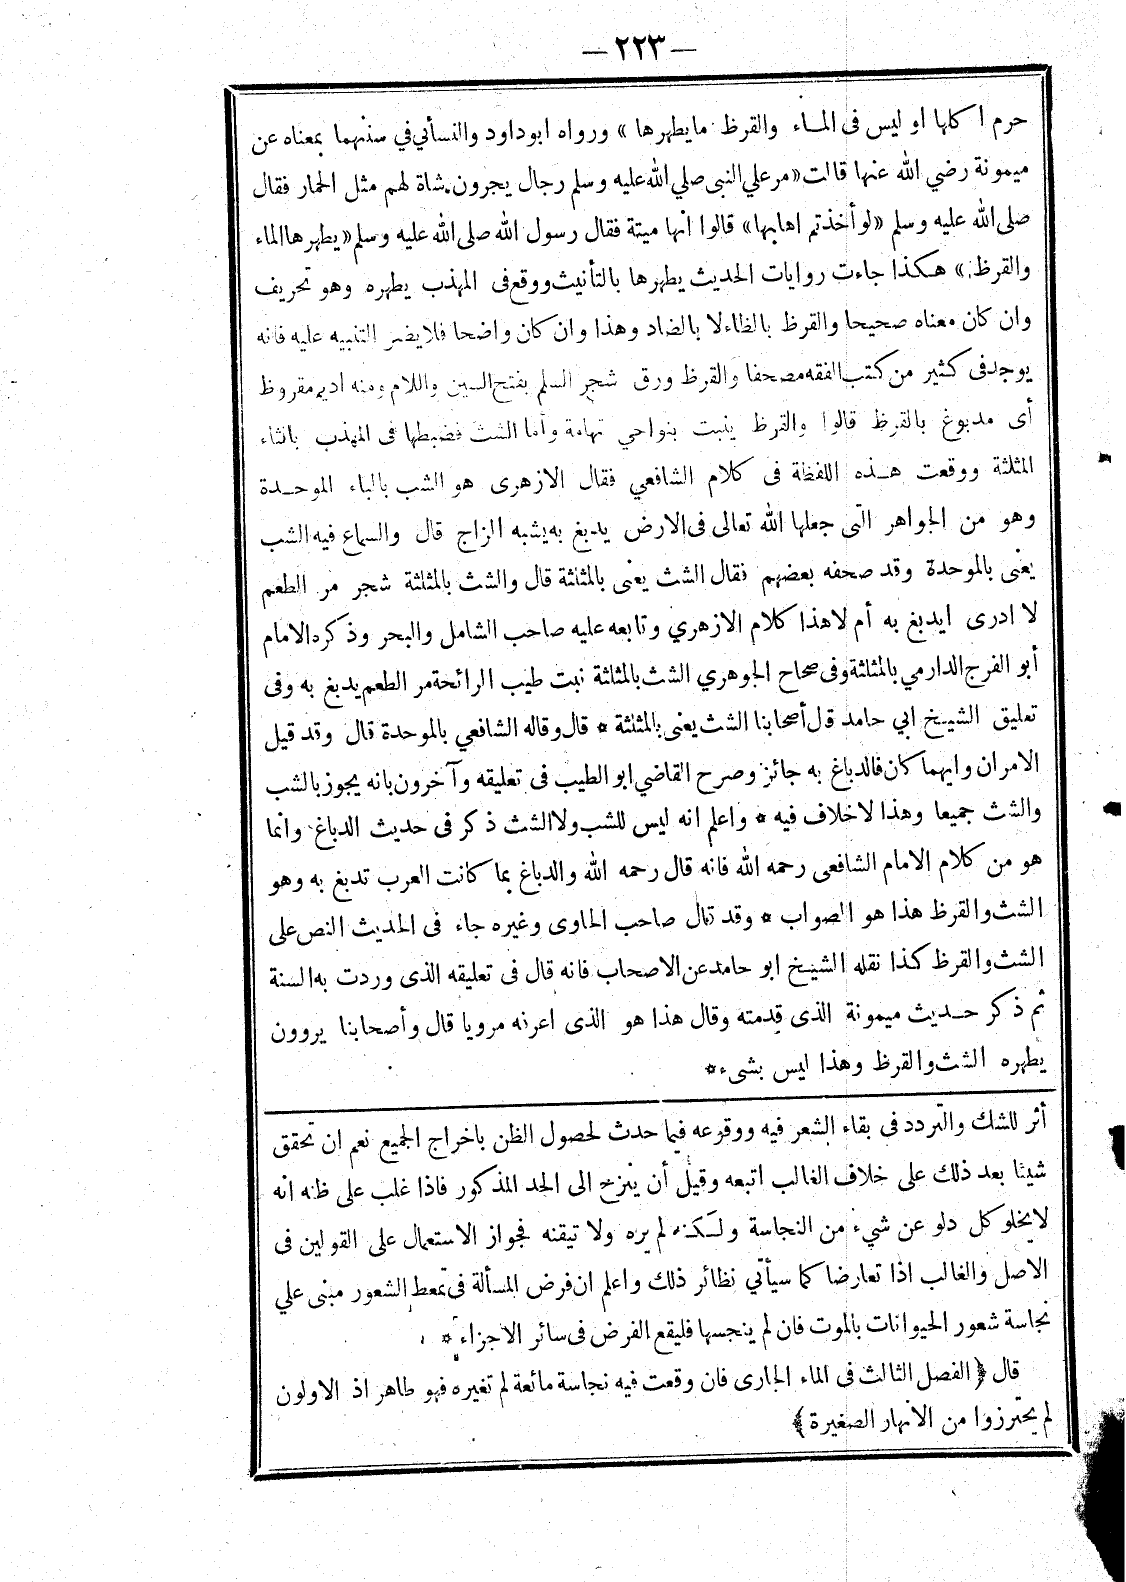 — ٢٢٣ —
حرم اكلها او ليس فى الماء والقرظ ما يطهرها » ورواه ابوداود والنسأبي في سننهما بمعناه عن
ميمونة رضي الله عنها قالت «مر علي النبى صلي الله عليه وسلم رجال يجرون شاة لهم مثل الحمار فقال
صلى الله عليه وسلم «لو أخذتم اهابها» قالوا انها ميتة فقال رسول الله صلى الله عليه وسلم «يطهرها الماء
والقرظ» هكذا جاءت روايات الحديث يطهرها بالتأنيث ووقع فى المهذب يطهره وهو تحريف
وان كان معناه صحيحا والقرظ بالظاء لا بالضاد وهذا وان كان واضحا فلا يضر التنبيه عليه فانه
يوجد فى كثير من كتب الفقه مصحفا والقرظ ورق شجر السلم بفتح السين واللام ومنه اديم مقروظ
أى مدبوغ بالقرظ قالوا والقرظ ينبت بنواحي تهامة وأما الشث فضبطها فى المهذب بالثاء
المثلثة ووقعت هذه اللفظة فى كلام الشافعي فقال الازهرى هو الشب بالباء الموحدة
وهو من الجواهر التى جعلها الله تعالى فى الارض يدبغ به يشبه الزاج قال والسماع فيه الشب
يعنى بالموحدة وقد صحفه بعضهم فقال الشث يعنى بالمثلثة قال والشث بالمثلثة شجر مر الطعم
لا ادرى ايدبغ به أم لا هذا كلام الازهري وتابعه عليه صاحب الشامل والبحر وذكره الامام
أبو الفرج الدارمي بالمثلثة وفى صحاح الجوهري الشث بالمثلثة نبت طيب الرائحة مر الطعم يدبغ به وفى
تعليق الشيخ ابي حامد قال أصحابنا الشث يعنى بالمثلثة * قال وقاله الشافعي بالموحدة قال وقد قيل
الامران وايهما كان فالدباغ به جائز وصرح القاضي ابو الطيب فى تعليقه وآخرون بانه يجوز بالشب
والشث جميعا وهذا لا خلاف فيه * واعلم انه ليس للشب ولا الشث ذكر فى حديث الدباغ وانما
هو من كلام الامام الشافعى رحمه الله فانه قال رحمه الله والدباغ بما كانت العرب تدبغ به وهو
الشث والقرظ هذا هو الصواب * وقد قال صاحب الحاوى وغيره جاء فى الحديث النص على
الشث والقرظ كذا نقله الشيخ ابو حامد عن الاصحاب فانه قال فى تعليقه الذى وردت به السنة
ثم ذكر حديث ميمونة الذى قدمته وقال هذا هو الذى اعرفه مرويا قال وأصحابنا يروون
يطهره الشث والقرظ وهذا ليس بشىء *
أثر للشك والتردد فى بقاء الشعر فيه ووقوعه فيما حدث لحصول الظن باخراج الجميع نعم ان تحقق
شيئا بعد ذلك على خلاف الغالب اتبعه وقيل أن ينزح الى الحد المذكور فاذا غلب على ظنه انه
لا يخلو كل دلو عن شيء من النجاسة ولكنه لم يره ولا تيقنه فجواز الاستعمال على القولين فى
الاصل والغالب اذا تعارضا كما سيأتي نظائر ذلك واعلم ان فرض المسألة فى تمعط الشعور مبنى علي
نجاسة شعور الحيوانات بالموت فان لم ينجسها فليقع الفرض فى سائر الاجزاء *
قال ﴿الفصل الثالث فى الماء الجارى فان وقعت فيه نجاسة مائعة لم تغيره فهو طاهر اذ الاولون
لم يحترزوا من الانهار الصغيرة﴾